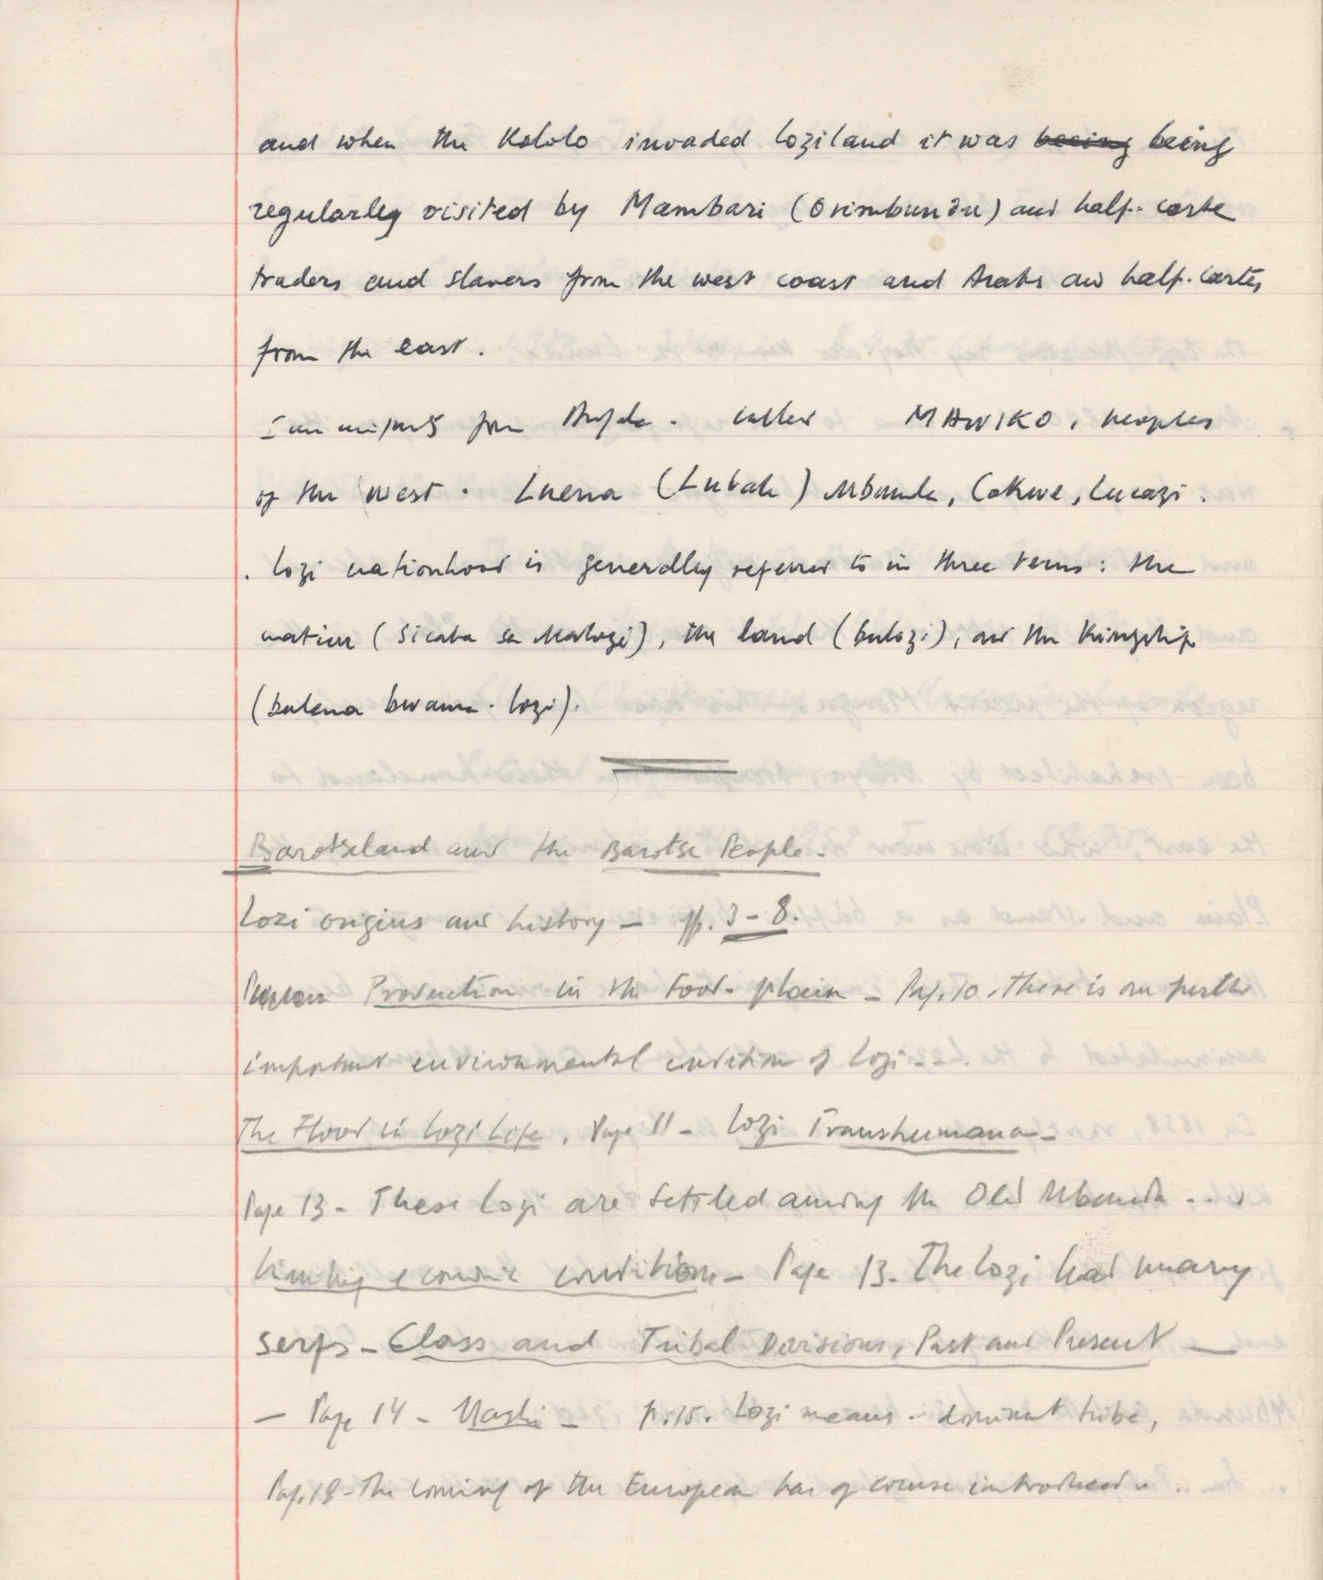 and when the Kololo invaded Loziland it was beeing being
regularley visited by Mambari (Ovimbundu) and half-caste
traders and slavers from the west coast and Arabs and half-castes
from the east.
Immigrants from Angola. called MAWIKO, peoples
of the west. Luena (Lubale) Mbunda, Cokwe, Lucazi.
. Lozi nationhood is generally referred to in three terms: the
nation (Sicaba sa Malozi), the land (bulozi), and the Kingship
(bulena bwama-lozi).
Barotseland and the Barotse People.
Lozi origins and history - pp. 3-8.
Production in the flood-plain - Page 10. There is one further
important environmental condition of Lozi ---.
The Flood in Lozi Life, Page 11 - Lozi Transhumance -
Page 13 - These Lozi are settled among the Old Mbunda ...
Limiting economic conditions - Page 13. The Lozi had many
serfs - Class and Tribal Divisions, Past and Present -
- Page 14 - Mashi - p.15. Lozi means - dominant tribe,
Page 18 - The coming of the European has of course introduced ...